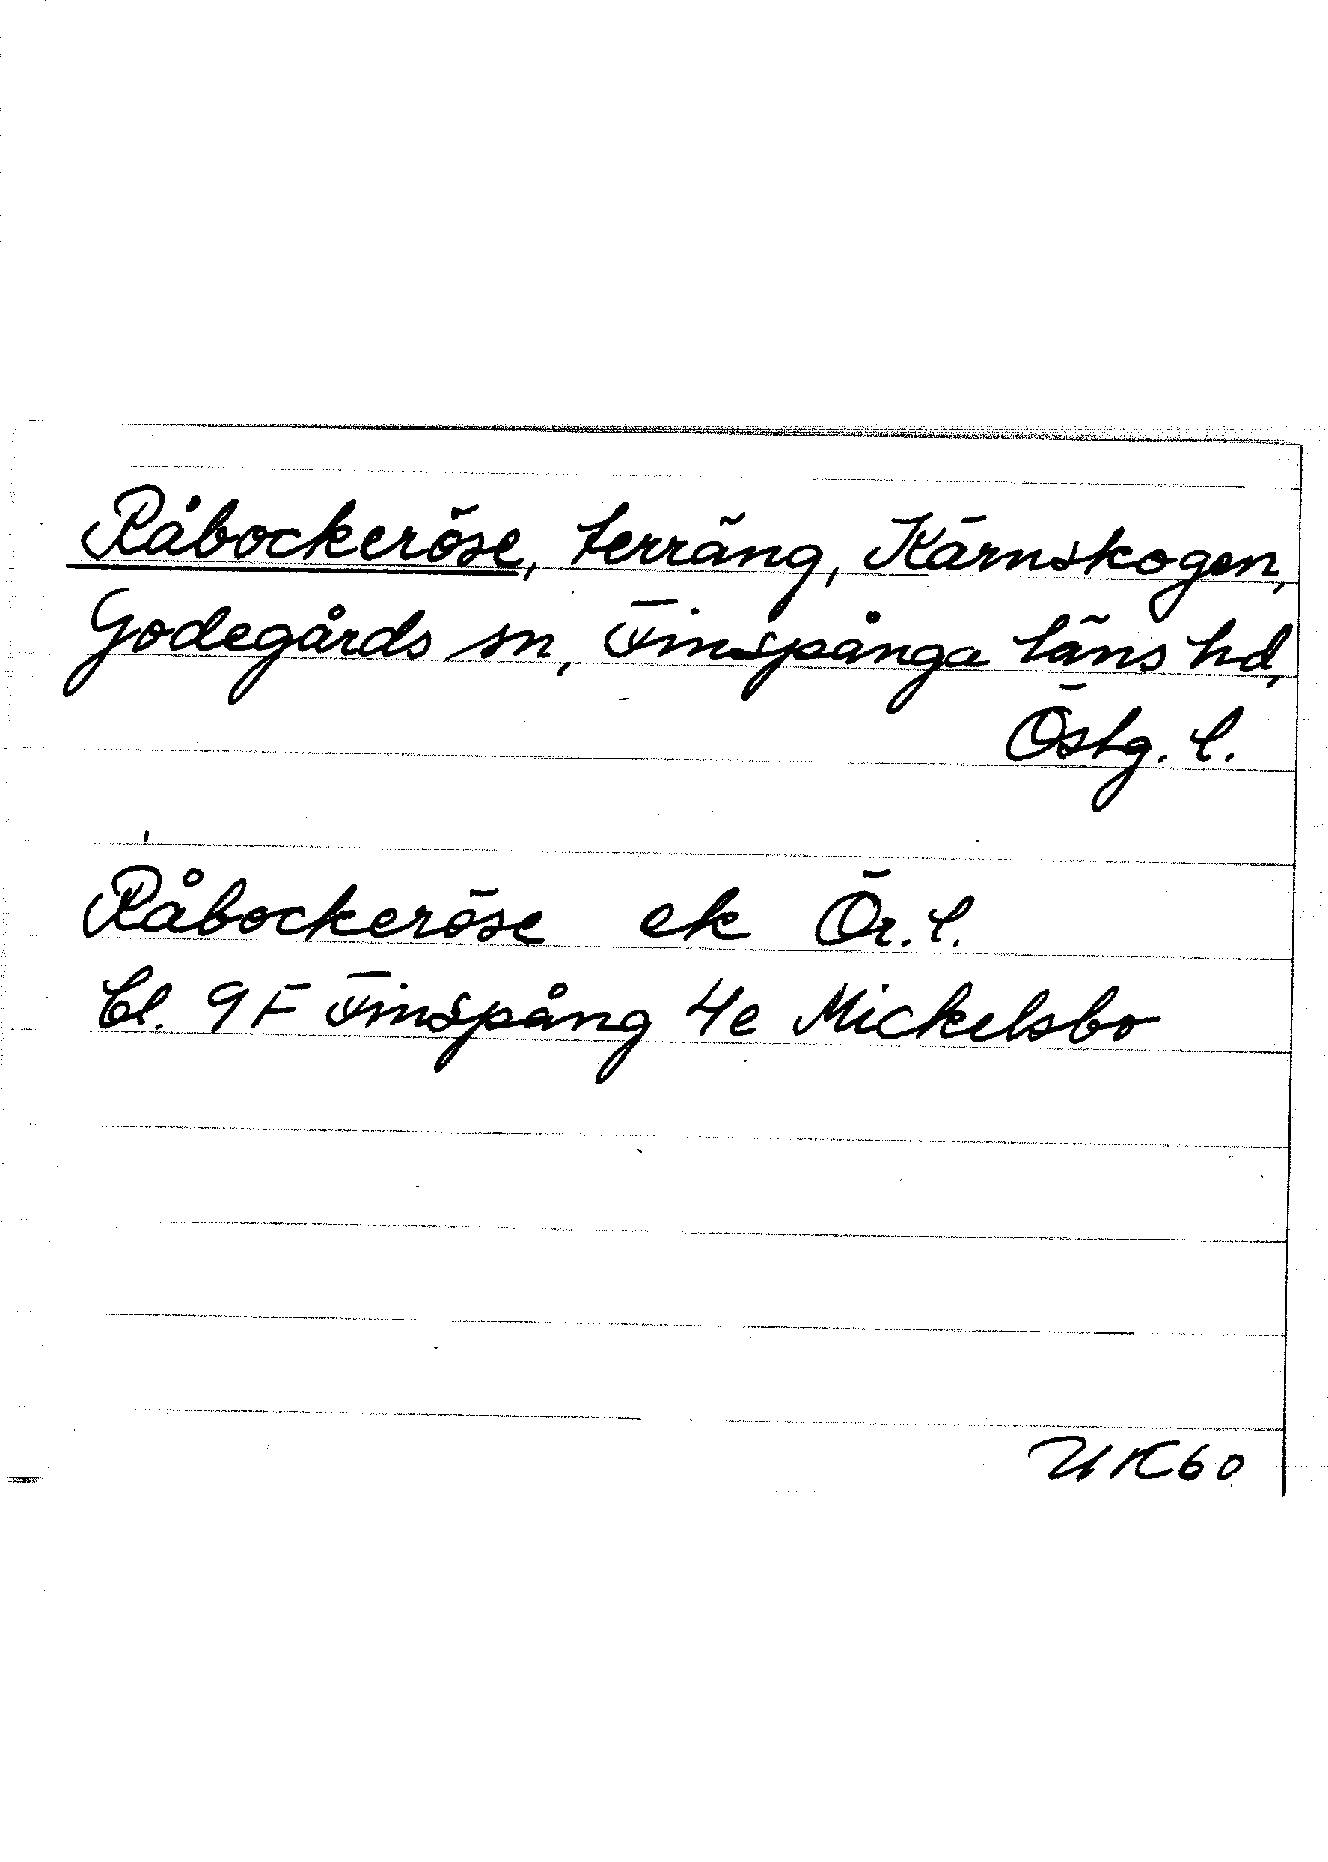 Råbockeröse, terräng, Kärnskogen,
Godegårds sn, Finspånga läns hd,
Östg. l.
Råbockeröse ek Ör. l.
bl. 9F Finspång 4e Mickelsbo
UK60